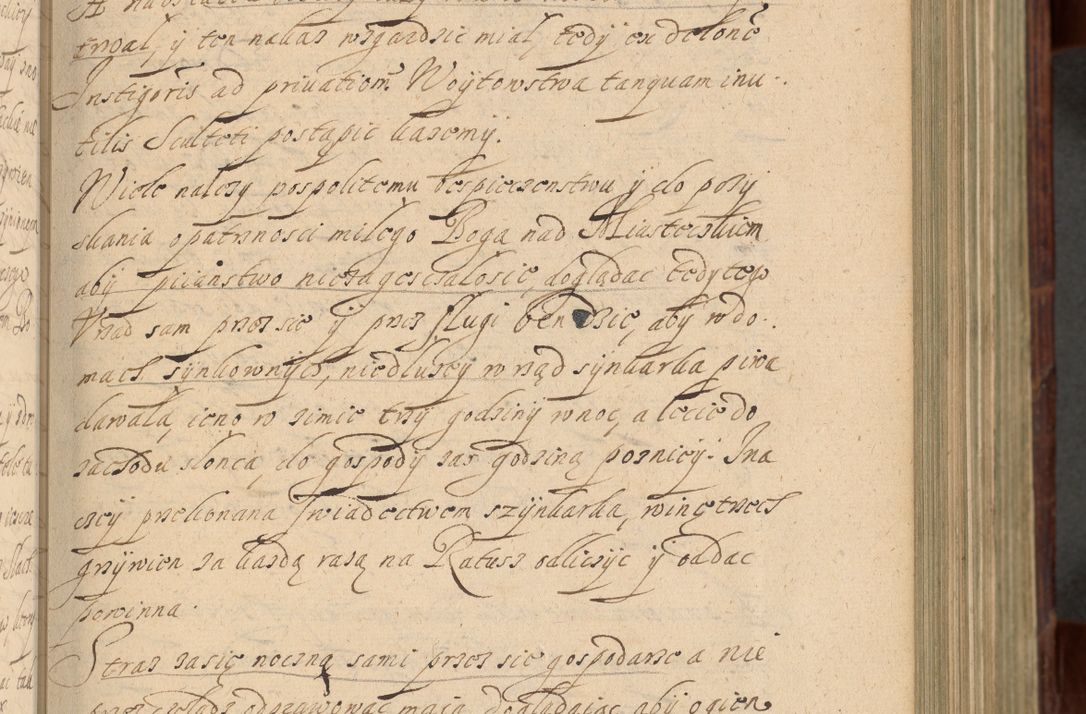 trwał, ÿ ten nakaz wzgardzic miał, tedÿ ex delone
Instigoris ad priuatiom Woÿtowstwa tanquam inu-
tilis Sculteti postąpic każemÿ.
Wiele należy pospolitemu bespieczenstwu ÿ do pozÿ
skania opatrznosci miłego Boga nad Miasteczkiem
abÿ piianstwo niezagesczałosie, doglądac tedÿ tego
Vrząd sam przez sie ÿ przez sługi będzie, abÿ w do-
mach szÿnkownÿch, niedłuzeÿ w rząd szÿnkarka piwa
dawała, ieno w zimie trzÿ godzinÿ wnoc, a lecie do
zachodu słonca, do gospodÿ zas godziną poznieÿ. Ina
czeÿ przekonana swiadectwem szÿnkarka, winę trzech
grzÿwien za kazdą razą na Ratusz odliczÿc ÿ oddac
powinna.
Straz zasię noczną sami przez sie gospodarze a nie
odprawowac maią doglądaiąc abÿ ogien